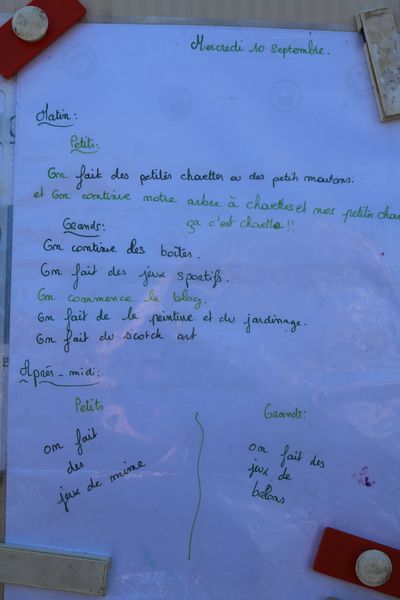 Mercredi 10 Septembre.
Matin:
Petits:
On fait des petites chouettes ou des petits moutons.
et On continue notre arbre à chouettes et nos petites
ça c'est chouette!!
Grands:
On continue des boîtes.
On fait des jeux sportifs.
On commence le blog.
On fait de la peinture et du jardinage.
On fait du scotch art
Après-midi:
Petits
on fait
des
jeux de mime
Grands:
on fait des
jeux de
ballons